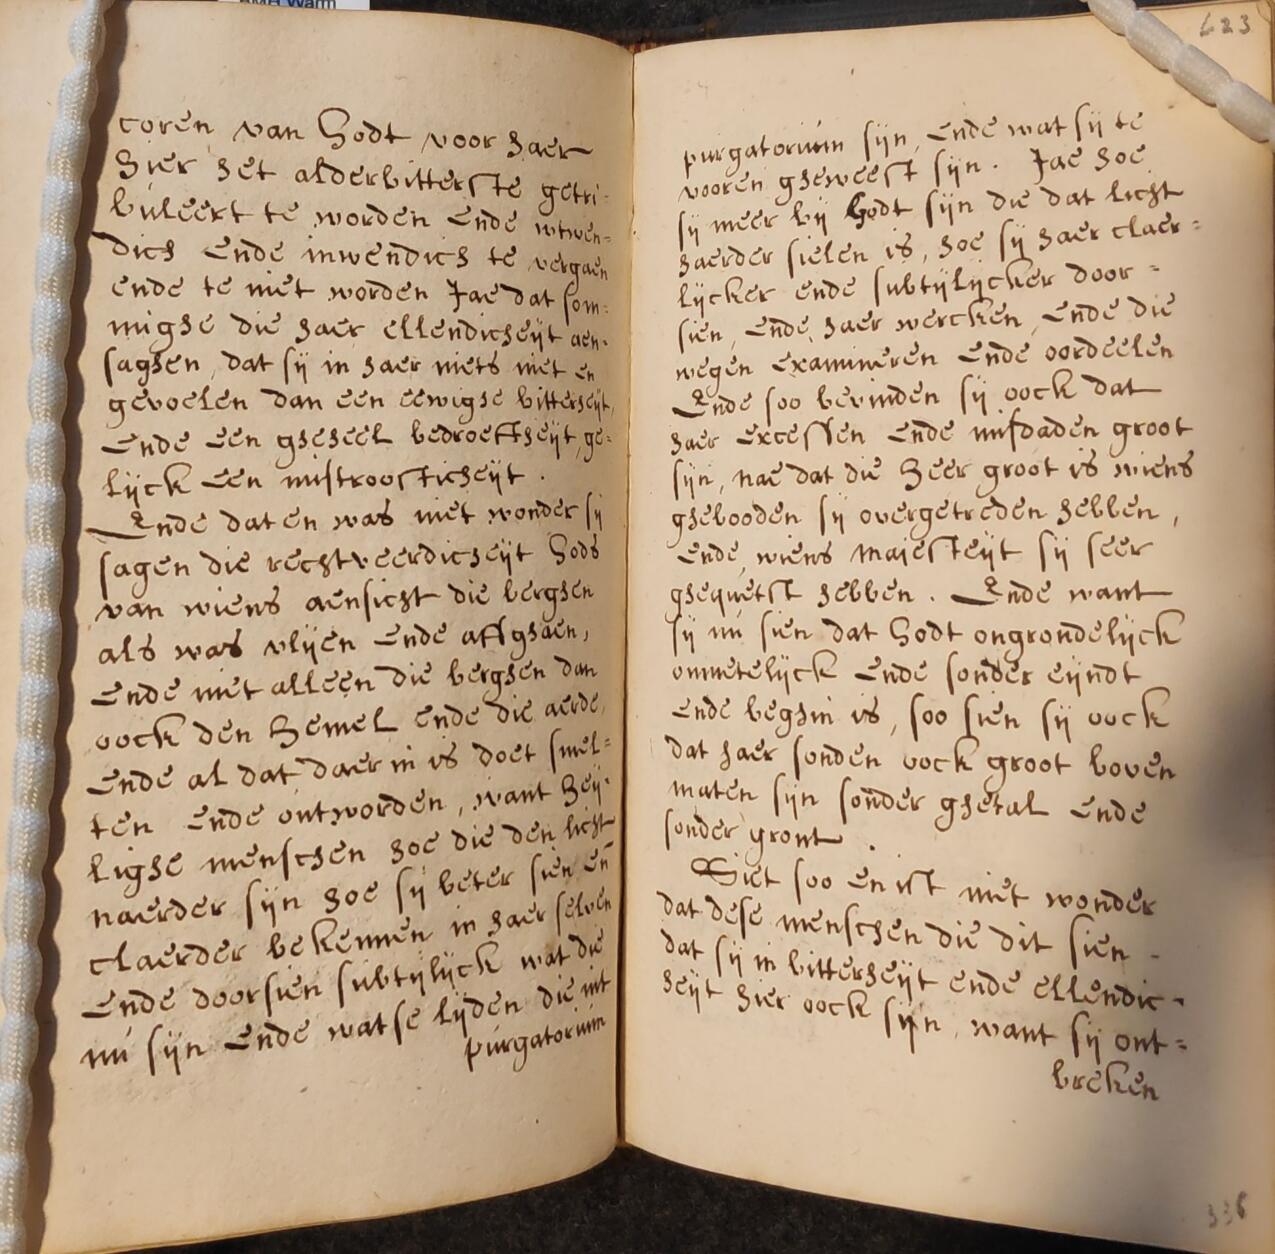 BMH Warm
coren van Godt voor haer
hier het alderbitterste getri-
buleert te worden Ende wtwen=
dich Ende inwendich te vergaen
ende te niet worden Jae dat som=
mighe die haer ellendicheijt aen-
saghen, dat sij in haer niets niet en
gevoelen dan een eewighe bitterheijt,
Ende een gheheel bedroeftheijt, ge=
lijck een mistroosticheijt.
Ende dat en was niet wonder sij
sagen die rechtveerdicheijt Gods
van wiens aensicht die berghen
als was vlijen Ende affghaen,
Ende niet alleen die berghen dan
oock den Hemel Ende die aerde,
Ende al dat daer in is doet smel=
ten Ende ontworden, want Heij-
lighe menschen hoe die den licht
naerder sijn hoe sij beter sien en
claerder bekennen in haer selven
Ende doorsien subtijlijck wat die
nu sijn Ende wat se lijden die int
purgatorium
623
purgatorium sijn, Ende wat sij te
vooren gheweest sijn. Jae hoe
sij meer bij Godt sijn die dat licht
haerder sielen is, hoe sij haer claer=
lijcker ende subtijlijcker door-
sien, Ende haer wercken, Ende die
wegen Examineren Ende oordeelen
Ende soo bevinden sij oock dat
haer Excessen Ende misdaden groot
sijn, nae dat die Heer groot is wiens
ghebooden sij overgetreden hebben,
Ende, wiens majesteijt sij seer
ghequetst hebben. Ende want
sij nu sien dat Godt ongrondelijck
onmetelijck Ende sonder eijndt
Ende beghin is, soo sien sij oock
dat haer sonden oock groot boven
maten sijn sonder ghetal Ende
sonder gront.
Siet soo en ist niet wonder
dat dese menschen die dit sien -
dat sij in bitterheijt ende ellendic-
heijt hier oock sijn, want sij ont=
breken
336